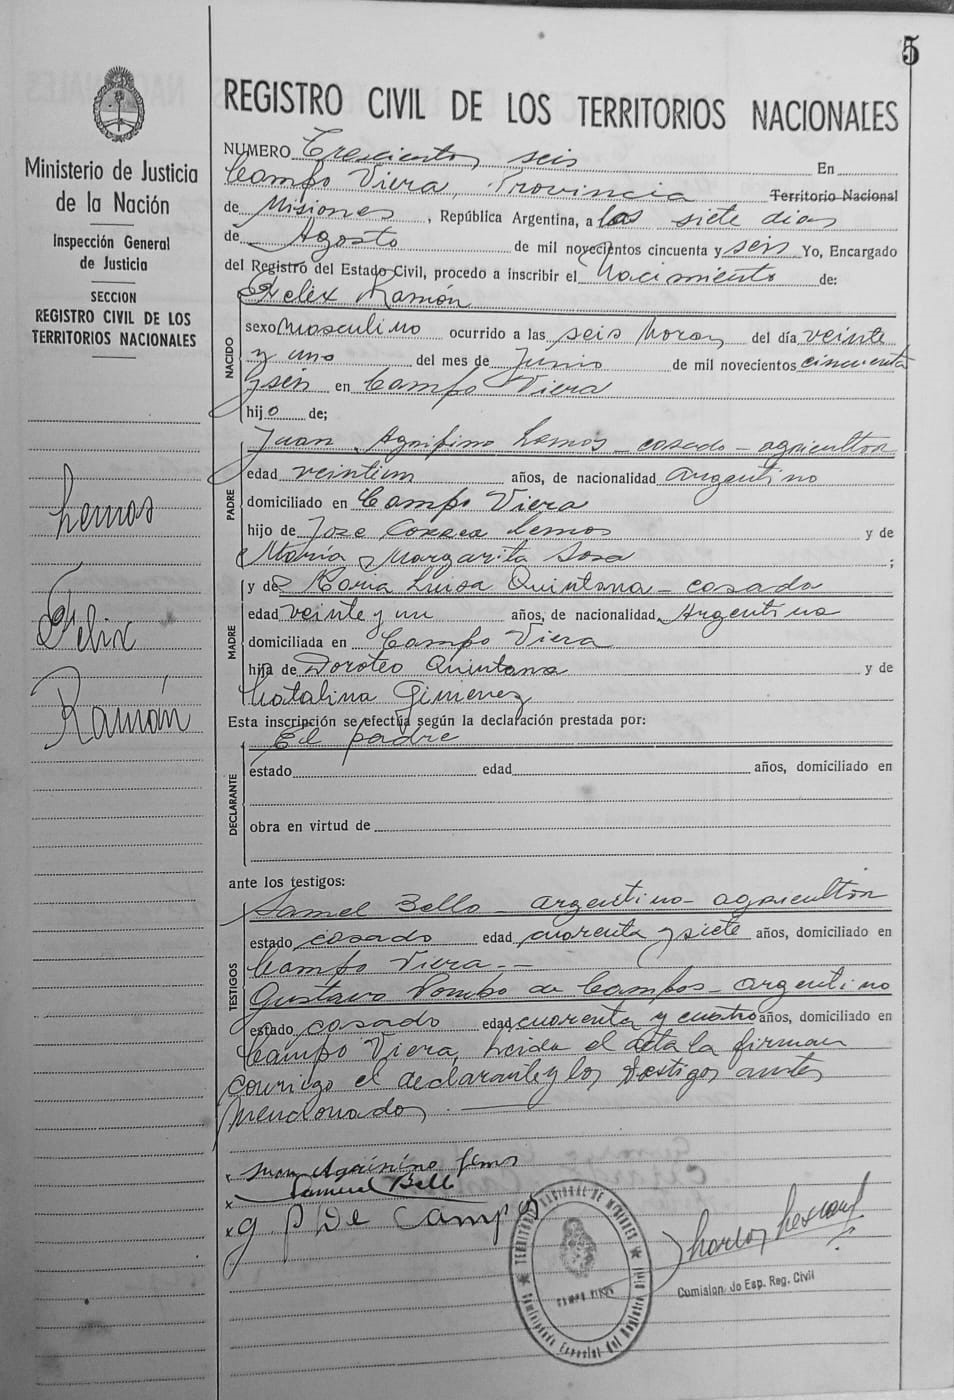 5
Ministerio de Justicia
de la Nación
Inspección General
de Justicia
SECCION
REGISTRO CIVIL DE LOS
TERRITORIOS NACIONALES
Lemos
Felix
Ramón
REGISTRO CIVIL DE LOS TERRITORIOS NACIONALES
NUMERO Trescientos seis En
Campo Viera, Provincia Territorio Nacional
de Misiones, República Argentina, a los siete dias
de Agosto de mil novecientos cincuenta y seis Yo, Encargado
del Registro del Estado Civil, procedo a inscribir el Nacimiento de:
Felix Ramón
NACIDO
sexo masculino ocurrido a las seis horas del día veinte
y uno del mes de Junio de mil novecientos cincuenta
y seis en Campo Viera
hijo de;
PADRE
Juan Agripino Lemos - casado - agricultor
edad veintiun años, de nacionalidad argentino
domiciliado en Campo Viera
hijo de Jose Correa Lemos y de
Maria Margarita Sosa ;
MADRE
y de Maria Luisa Quintana - casada
edad veinte y un años, de nacionalidad Argentina
domiciliada en Campo Viera
hija de Doroteo Quintana y de
Catalina Gimenez
Esta inscripción se efectúa según la declaración prestada por:
El padre
DECLARANTE
estado edad años, domiciliado en
obra en virtud de
ante los testigos:
TESTIGOS
Samel Bello - argentino - agricultor
estado casado edad cuarenta y siete años, domiciliado en
Campo Viera. -
Gustavo Pombo de Campos - argentino
estado casado edad cuarenta y cuatro años, domiciliado en
Campo Viera, Leida el acta la firman
conmigo el declarante y los testigos antes
mencionados. -
x Juan Agripino Lemos
x Samuel Bello
x G P De Campos
TERRITORIO NACIONAL DE MISIONES
CAMPO VIERA
Comisionado Especial del Registro Civil
Comision. do Esp. Reg. Civil